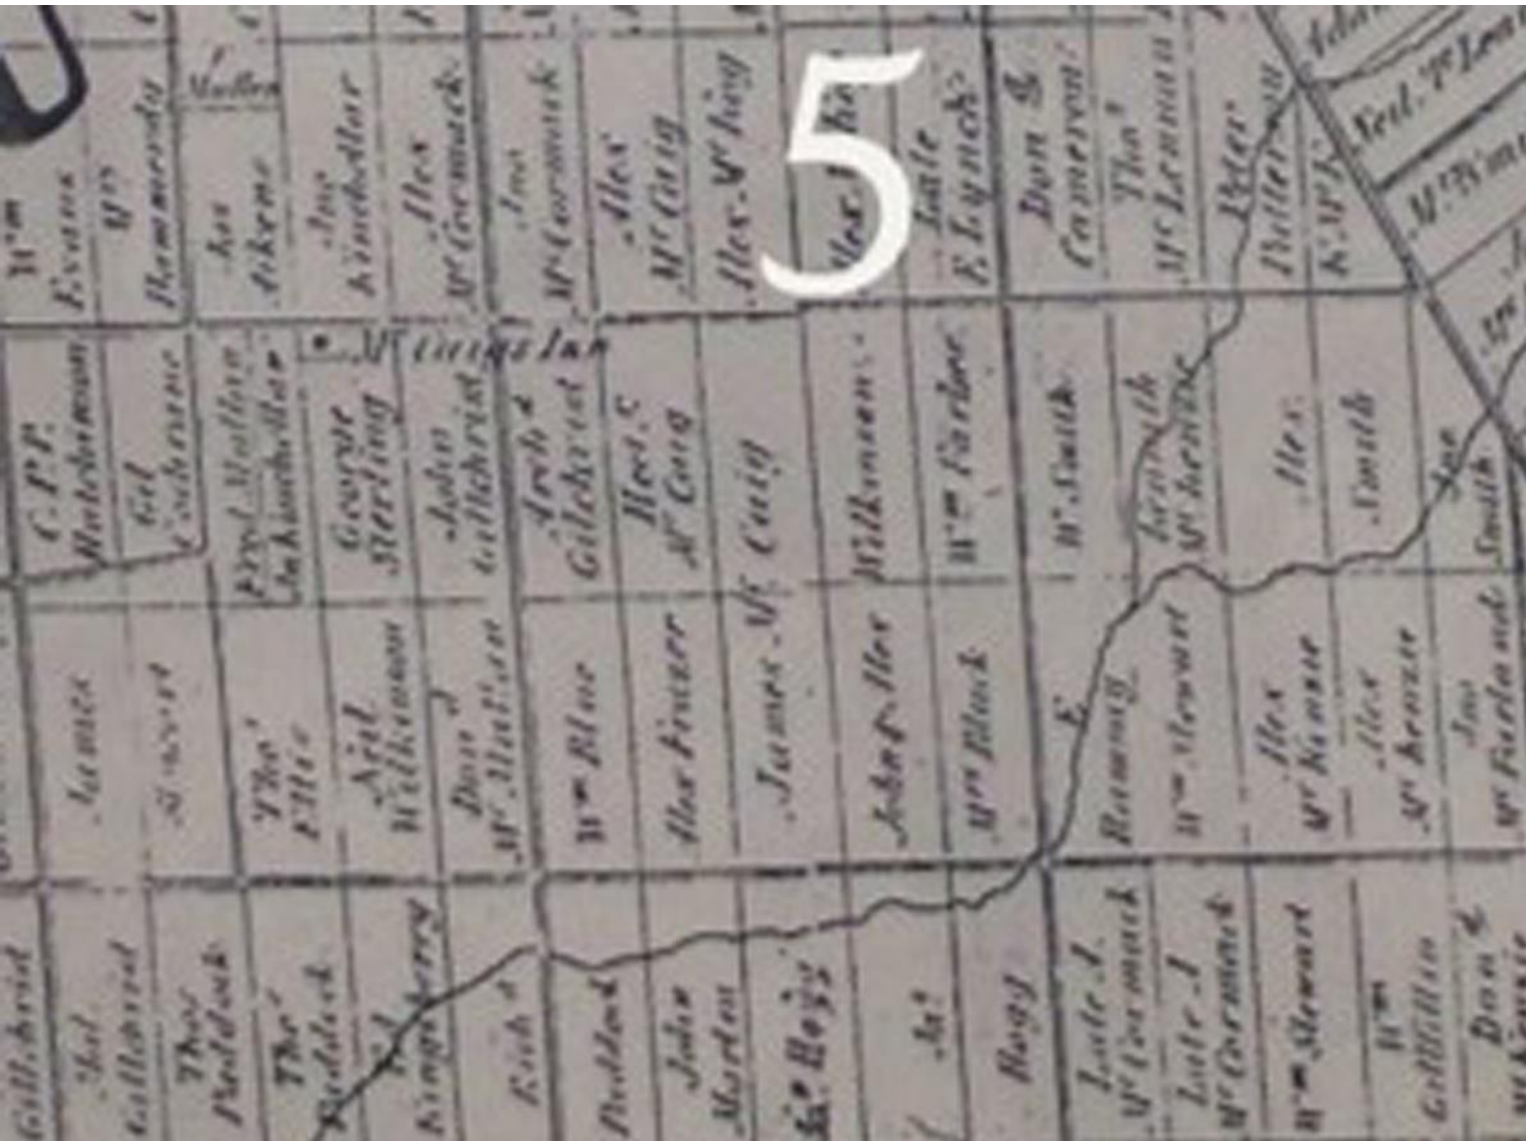 5
Mullen
Wm
Evans
Wm
Hammersly
Jas
Aikens
Jno
Kinchellar
Alex
McCormack
Jno
McCormack
Alex
McCaig
Alex. McKing
Alex
Late
E. Lynch
Don d
Cameron
Tho s
McLennan
Peter
Patterson
Neil McLean
C.P.P.
Hutchinson
Gil
Cochrane
Fred Mullen
Inkinchellar
McCaigs Inn
George
Sterling
John
Gilchrist
Arch d
Gilchrist
Hect r
McCaig
James Mc Caig
Wilkinson
Wm Parker
W. South
Kenneth
McKenzie
Alex.
South
Jno
South
James
Stewart
Tho s
Ellis
Neil
Wilkinson
Don d
McMillan
Wm Blue
Alex Frazer
John McKer
Mrs Black
E
Ramsay
Wm Stewart
Alex
McKenzie
Alex
McKenzie
Jno
McFarland
Gilchrist
Mal
Gilchrist
Tho s
Paddock
Tho s
Paddock
Kingsberry
Rich d
Paddock
John
Marten
Hogg
Ja s
Hogg
Late J.
McCormack
Late J
McCormack
Wm Stewart
Wm
Gillillin
Don d
McKenzie